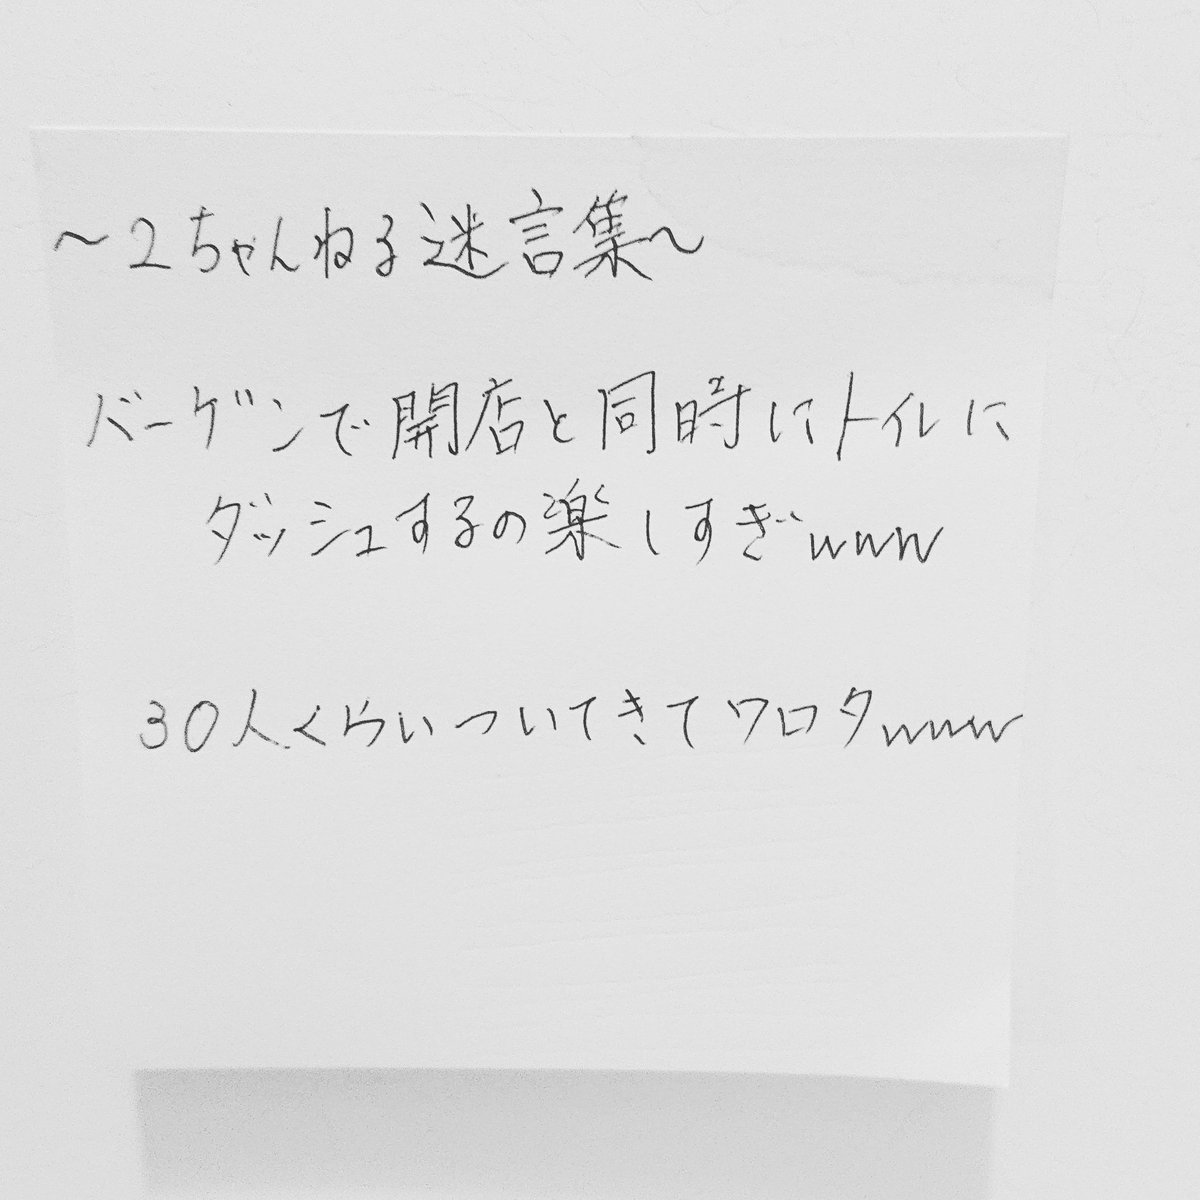 〜2ちゃんねる迷言集〜
バーゲンで開店と同時にトイレに
ダッシュするの楽しすぎwww
30人くらいついてきてワロタwww